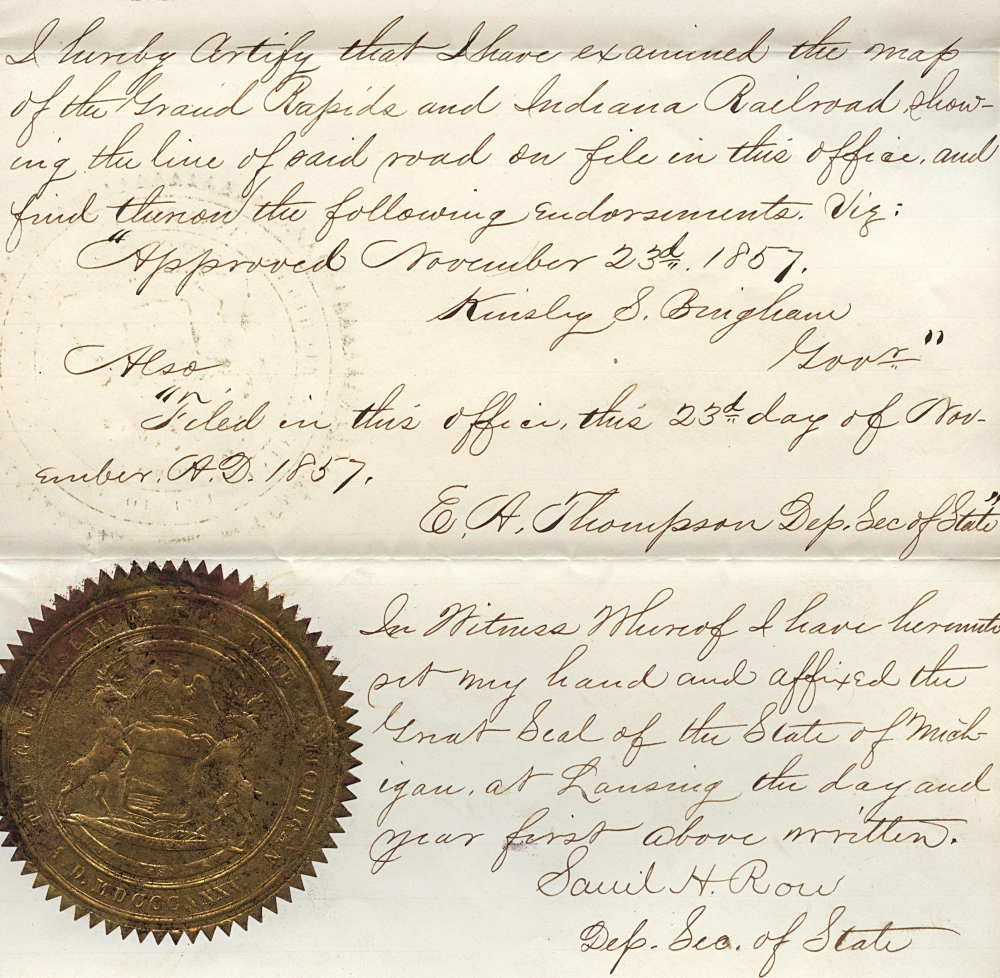 I hereby Certify that I have examined the map
of the Grand Rapids and Indiana Railroad, show-
ing the line of said road on file in this office, and
find thereon the following endorsements. Viz:
"Approved November 23d. 1857.
Kinsley S. Bingham
Govr."
Also
"Filed in this office, this 23d day of Nov-
ember, A.D. 1857.
E. A. Thompson Dep. Sec of State"
In Witness Whereof I have hereunto
set my hand and affixed the
Great Seal of the State of Mich-
igan, at Lansing the day and
year first above written.
H. Row
Dep. Sec. of State
THE GREAT SEAL OF THE STATE OF MICHIGAN